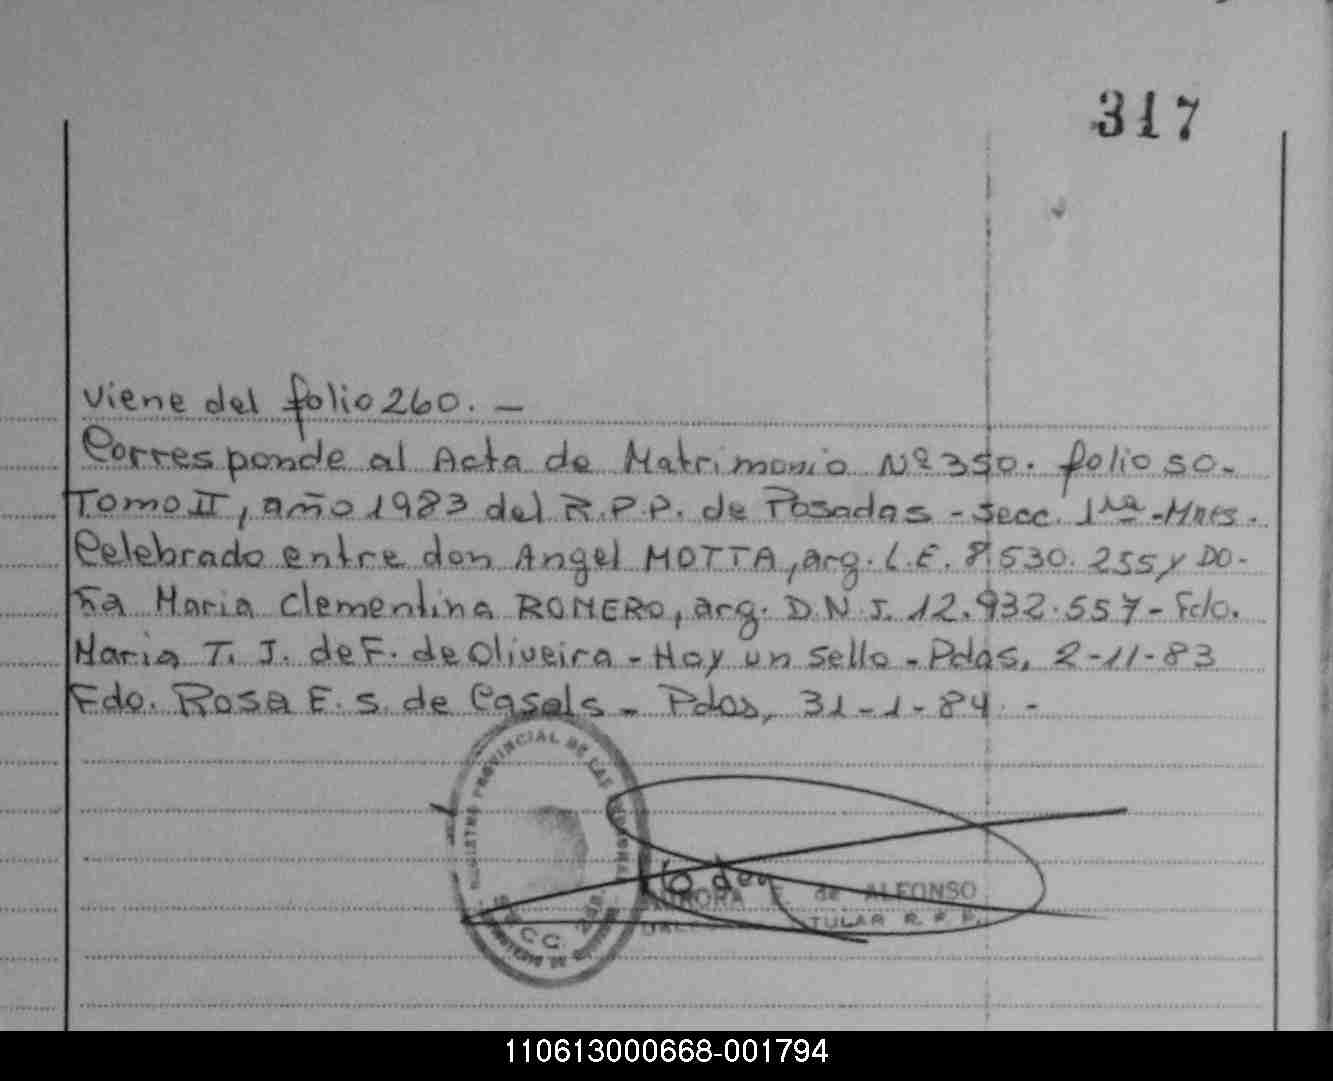 317
Viene del folio 260. —
Corresponde al Acta de Matrimonio Nº 350. folio 50-
Tomo II, año 1983 del R.P.P. de Posadas - Secc. 1ra - Mnes.
Celebrado entre don Angel MOTTA, arg. L.E. 8.530.255 y DO-
ña Maria Clementina ROMERO, arg. D.N.I. 12.932.557 - Fdo.
Maria T. J. de F. de Oliveira - Hay un sello - Pdas, 2-11-83
Fdo. Rosa E. S. de Casals - Pdas, 31-1-84. -
PROVINCIAL DE LAS
SECC. 2da.
de ALFONSO
TULAR R. P. P.
110613000668-001794